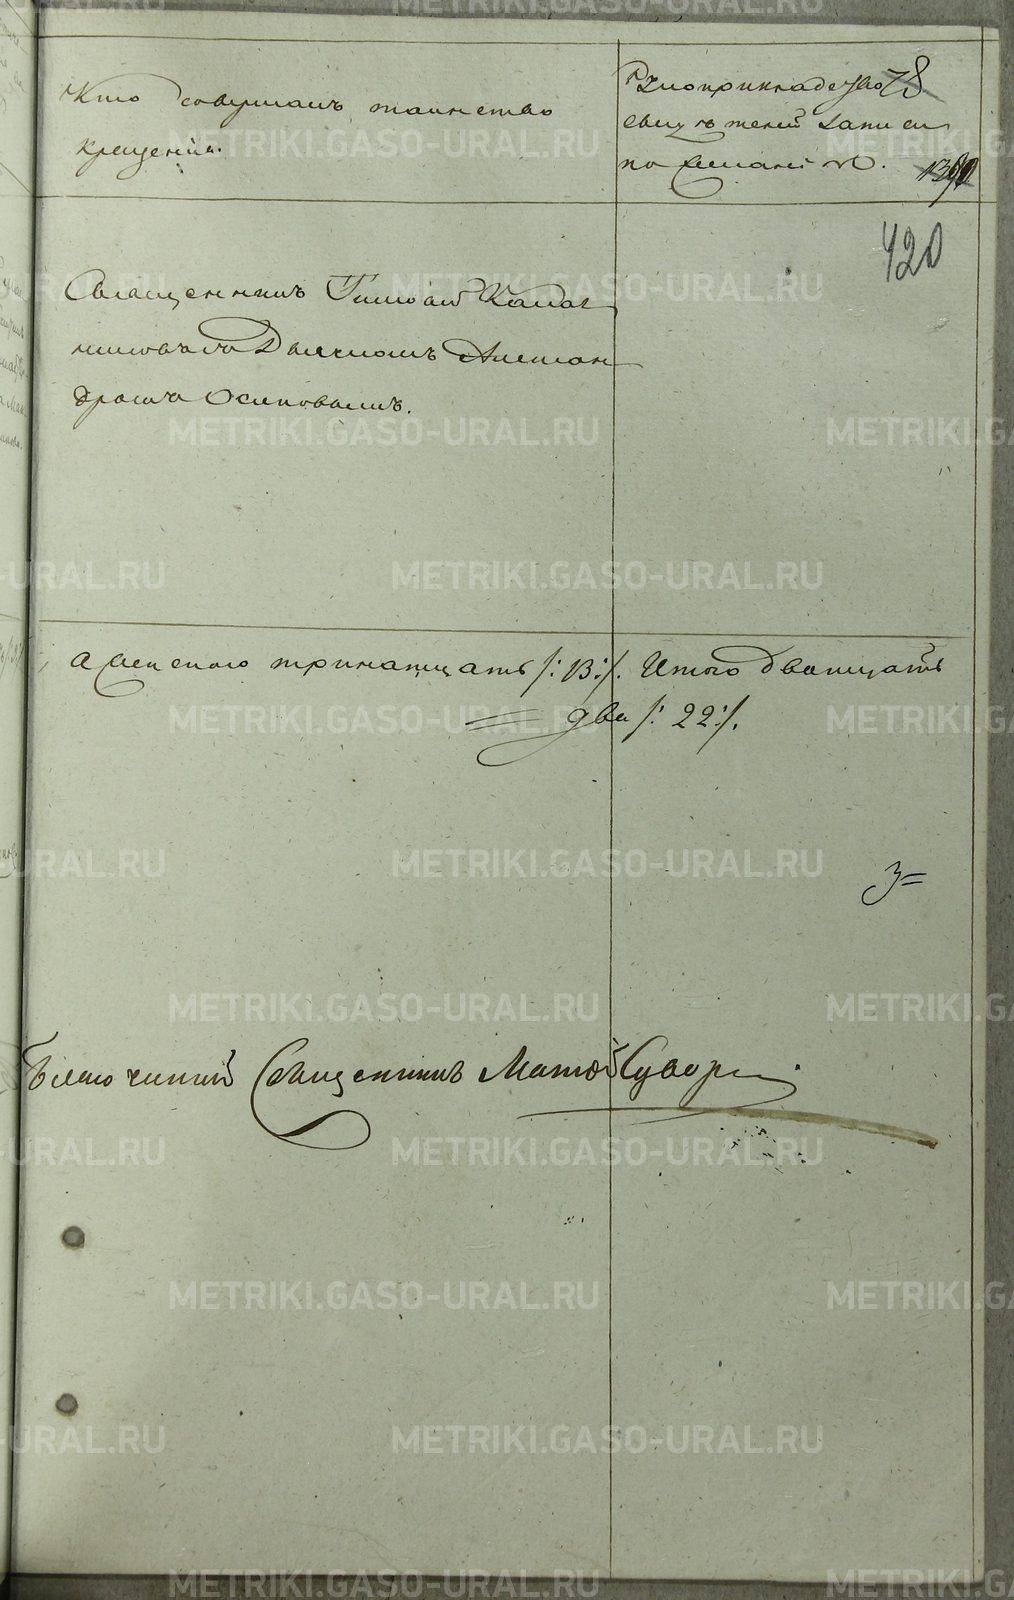 Кто совершалъ таинство
крещенія.
Рукоприкладство
свидѣтелей записи
по желанію.
78
1390
420
Священникъ Калаш
никовъ съ Дьячкомъ Алексан
дромъ Осиповымъ.
а женскаго тринатцать /: 13 :/. Итого дватцать
два /: 22 :/.
3=
Благочинный Священникъ Матѳей Сувор
METRIKI.GASO-URAL.RU